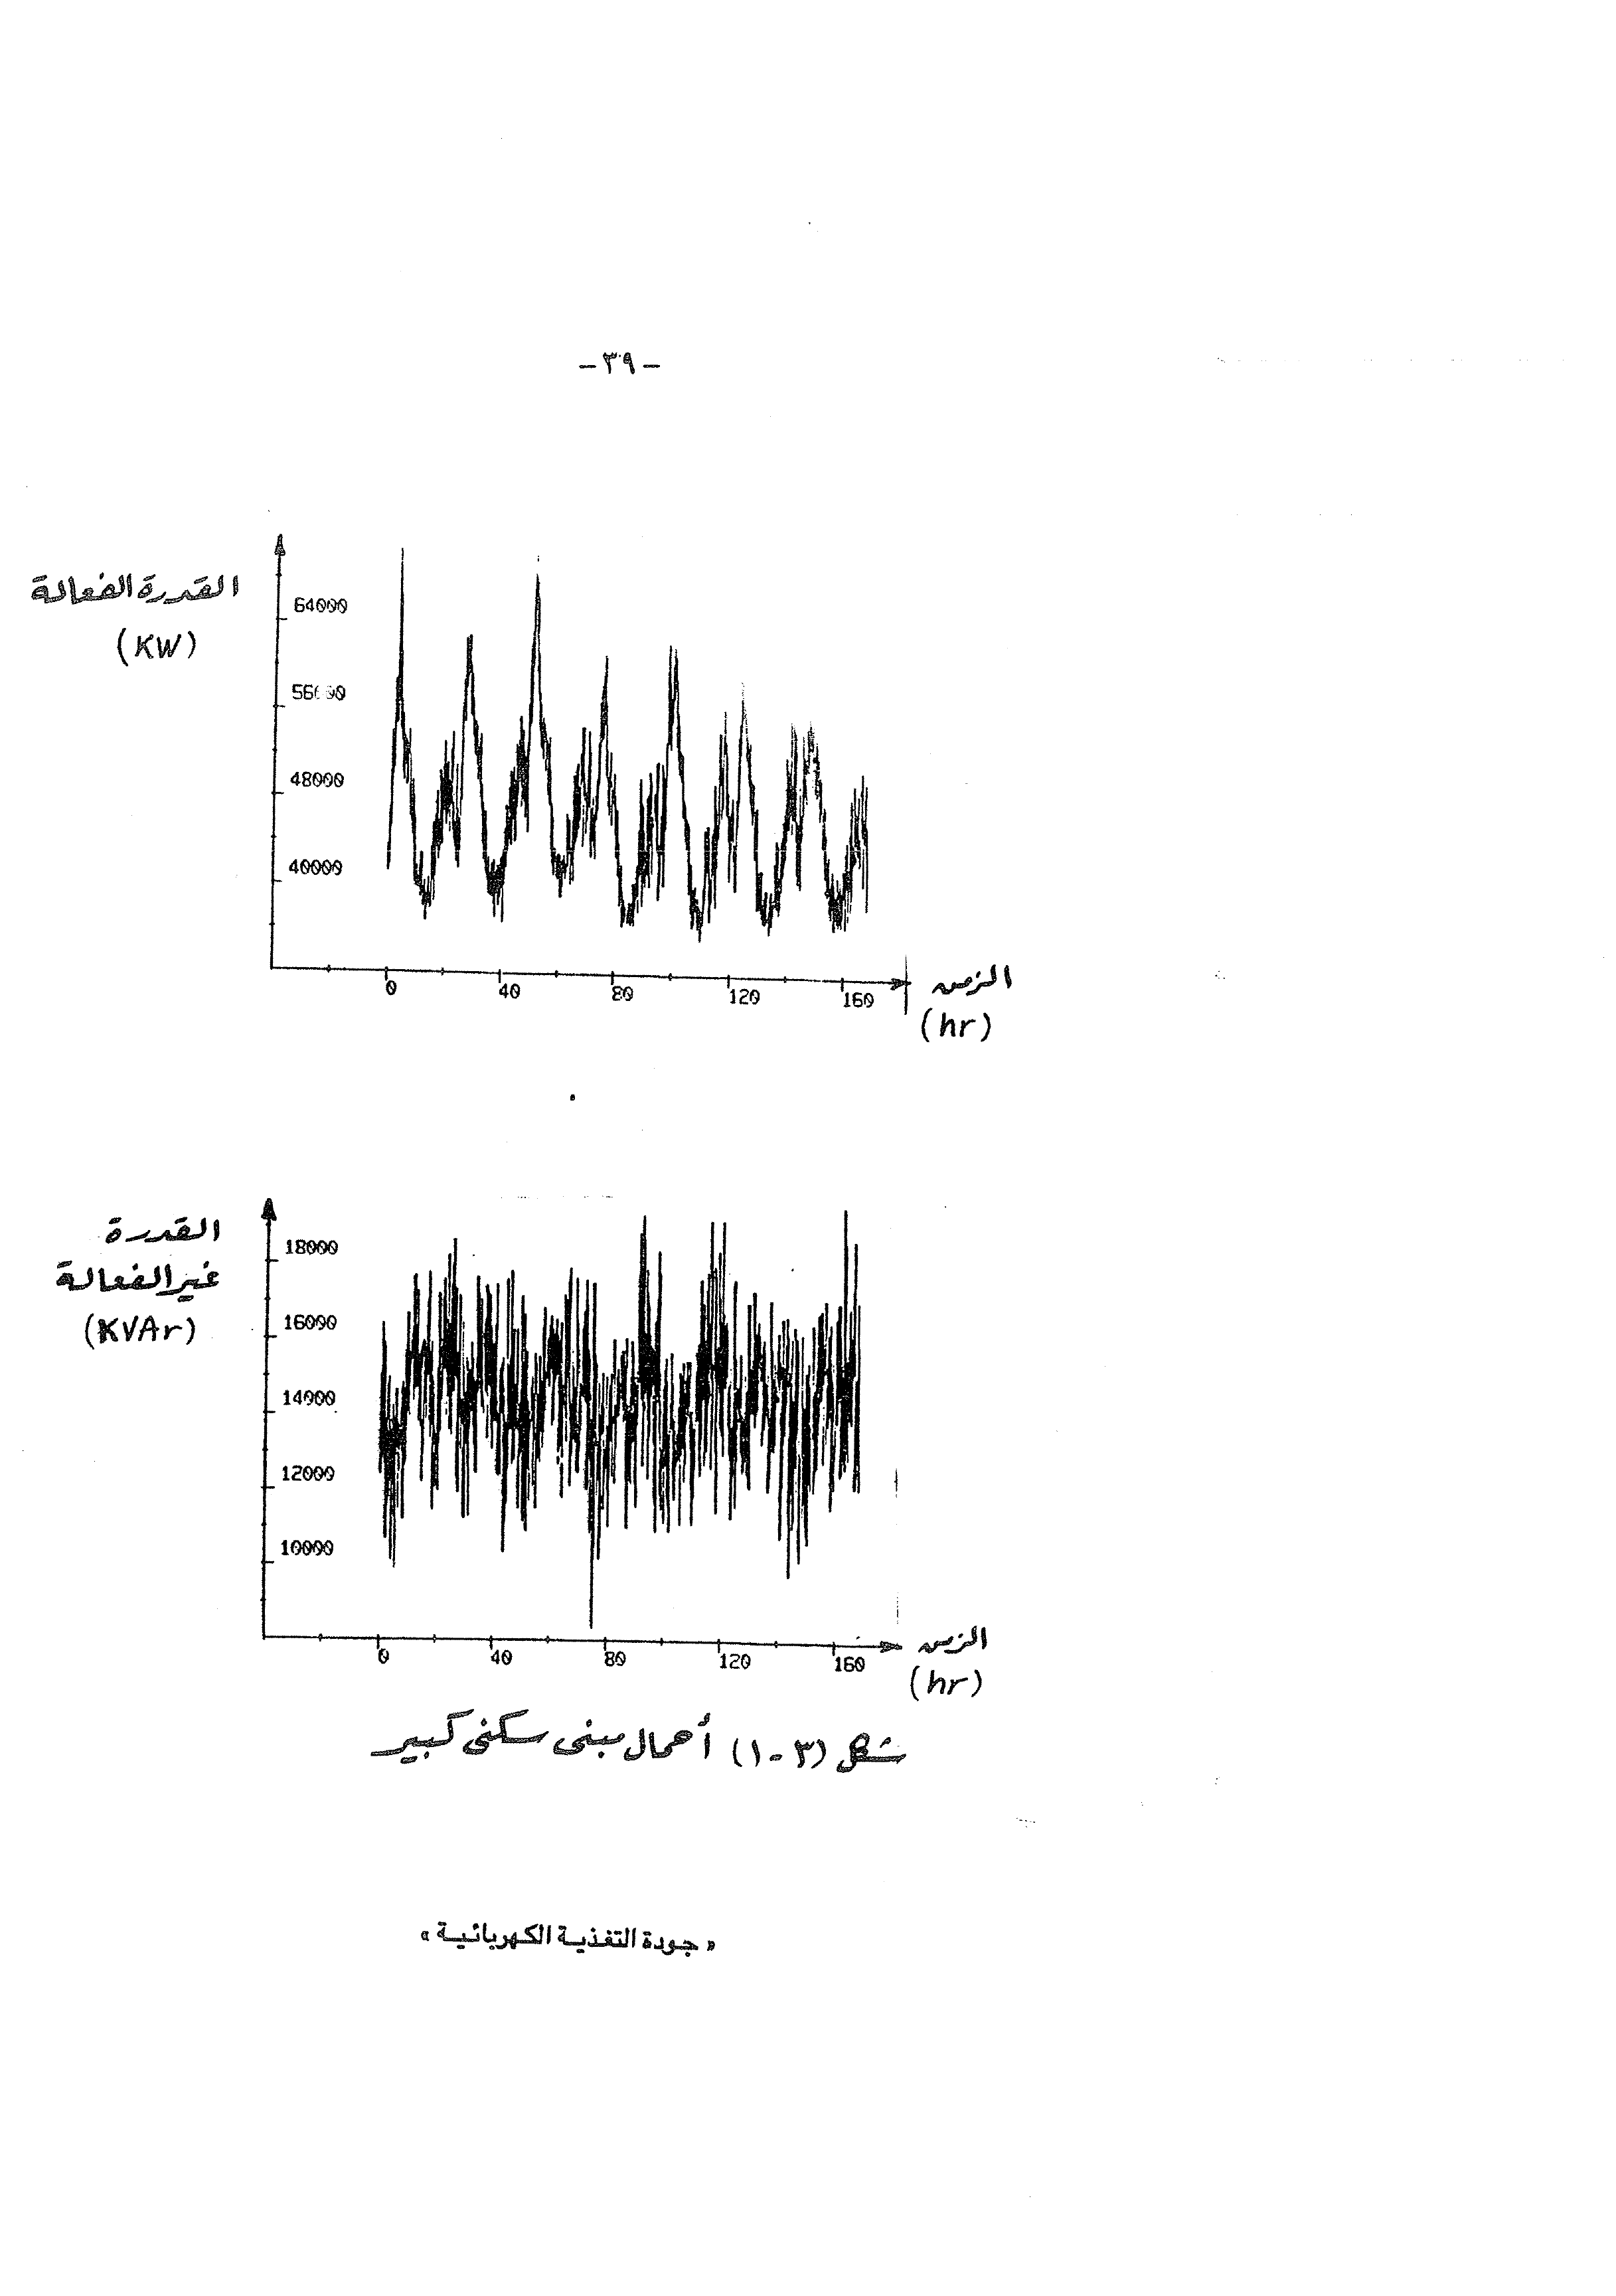 - ٣٩ -
القدرة الفعالة
(KW)
64000
56000
48000
40000
0
40
80
120
160
الزمن
(hr)
القدرة
غير الفعالة
(KVAr)
18000
16000
14000
12000
10000
0
40
80
120
160
الزمن
(hr)
شكل (٣-١) أحمال مبنى سكنى كبير
« جودة التغذية الكهربائية »